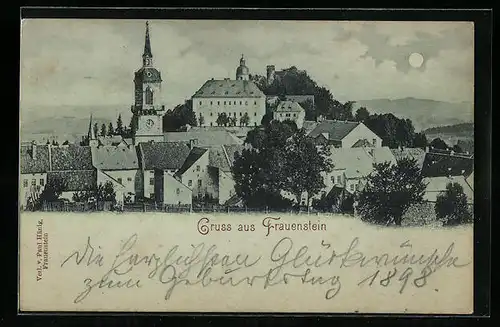 Gruss aus Frauenstein
Die herzlichsten Glückwünsche
zum Geburtstag 1898.
Verl. v. Paul Hänig,
Frauenstein